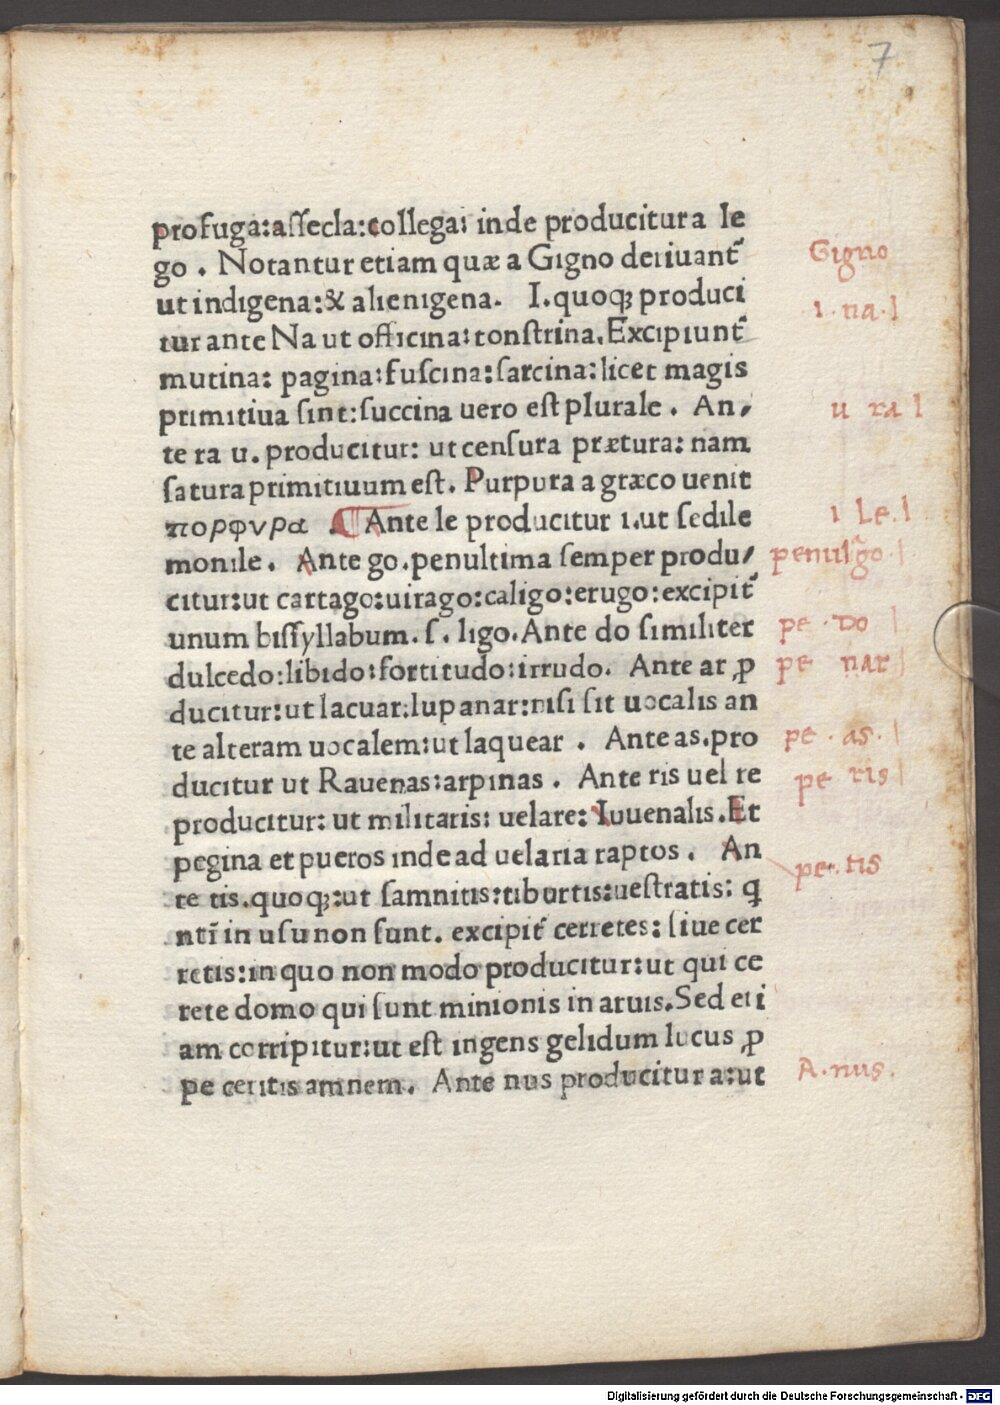 7
profuga:aſſecla:collega: inde producitur a le
go . Notantur etiam quæ a Gigno deriuant᷑
ut indigena:& alienigena. I.quoqꝫ produci
tur ante Na ut officina:tonſtrina.Excipiunt᷑
mutina: pagina:fuſcina:ſarcina:licet magis
primitiua ſint:ſuccina uero eſt plurale . An/
te ra u. producitur: ut cenſura prætura: nam
ſatura primitiuum eſt. Purpura a græco uenit
πορφυρα . ¶ Ante le producitur i.ut ſedile
monile . Ante go.penultima ſemper produ/
citur:ut cartago:uirago:caligo:erugo:excipit᷑
unum biſſyllabum. ſ. ligo.Ante do ſimiliter
dulcedo:libido:fortitudo:irrudo. Ante ar ꝓ
ducitur:ut lacuar:lupanar:niſi ſit uocalis an
te alteram uocalem:ut laquear . Ante as.pro
ducitur ut Rauenas:arpinas . Ante ris uel re
producitur: ut militaris: uelare: Iuuenalis.Et
pegina et pueros inde ad uelaria raptos . An
te tis.quoqꝫ:ut ſamnitis:tiburtis:ueſtratis: q
nti̅ in uſu non ſunt. excipit᷑ cerretes: ſiue cer
retis:in quo non modo producitur:ut qui ce
rete domo qui ſunt minionis in aruis.Sed eti
am corripitur:ut eſt ingens gelidum lucus ꝓ
pe ceritis amnem. Ante nus producitur a:ut
Gigno
i . na . l
u ra l
i Le . l
penul᷑ go l
pe . do l
pe nar l
pe . as . l
pe ris l
pe . tis
A . nus .
Digitalisierung gefördert durch die Deutsche Forschungsgemeinschaft - DFG